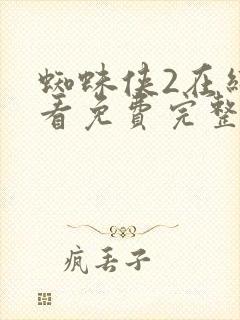 蜘蛛侠2在
看免费完整
疯丢子